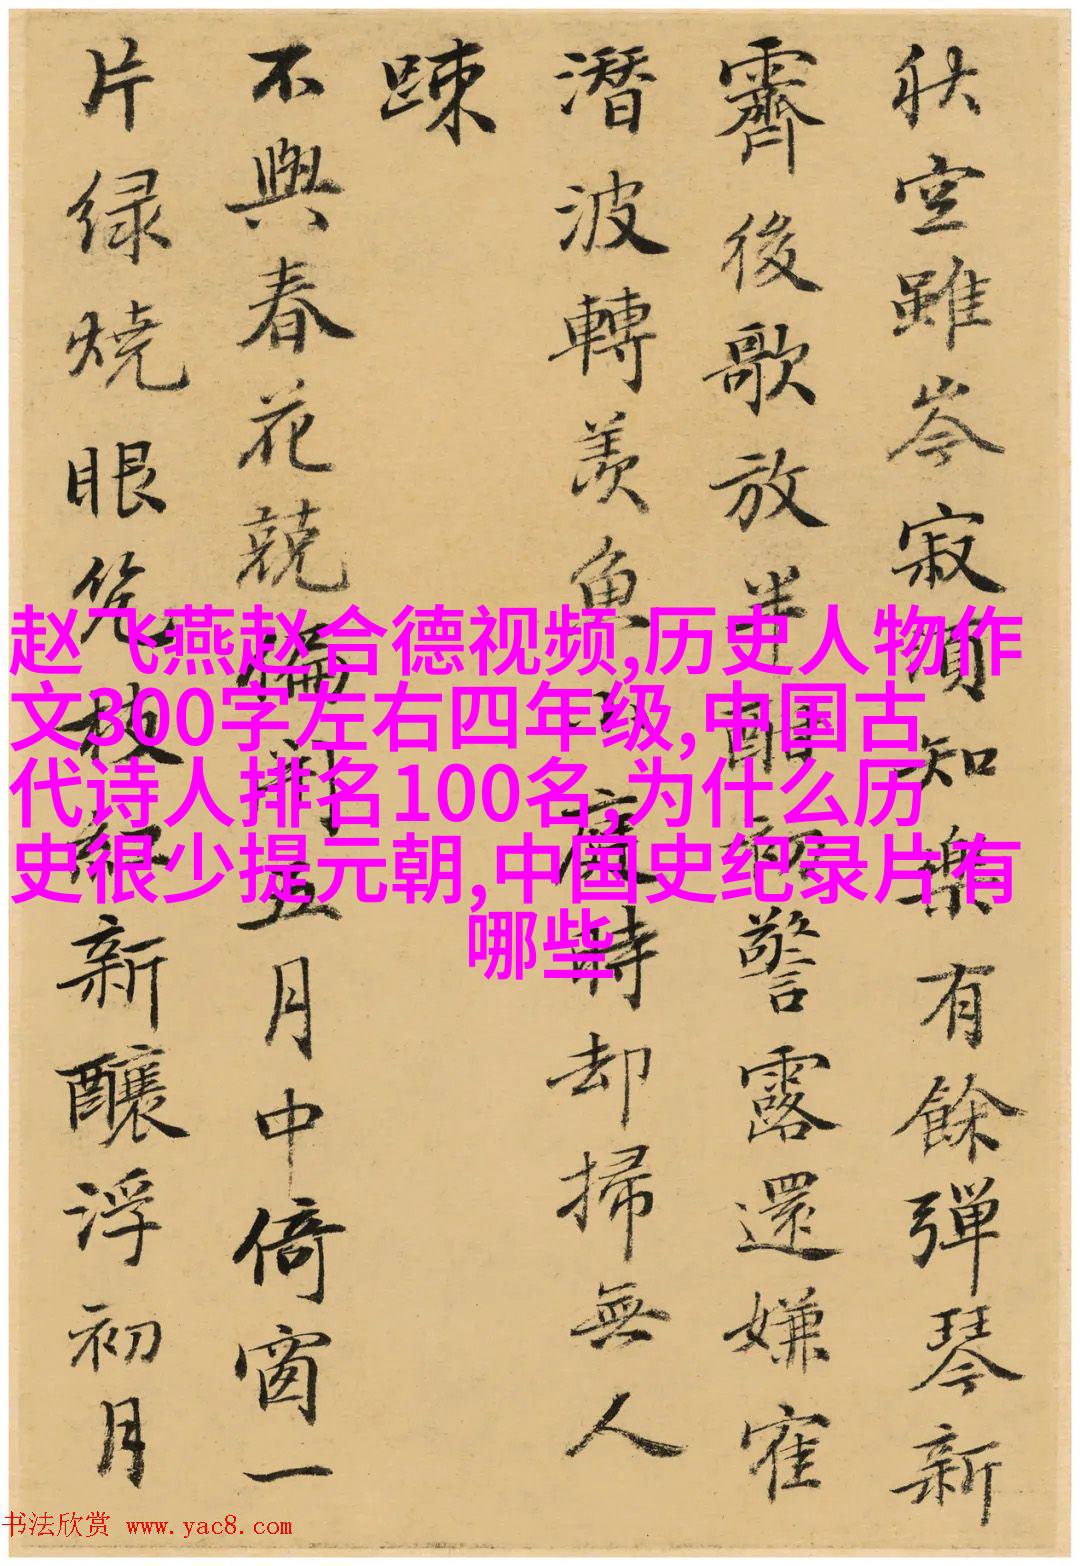 秋空雖岑寂須知樂有餘彈琴新
霽後歌放半酣初警露還嫌寉
潛波轉羨魚時却掃無人
踈
不與春花競偏五月中倚窗一
片緑燒眼枝紅新釀浮初月
赵飞燕赵合德视频,历史人物作
文300字左右四年级,中国古
代诗人排名100名,为什么历
史很少提元朝,中国史纪录片有
哪些
书法欣赏 www.yac8.com